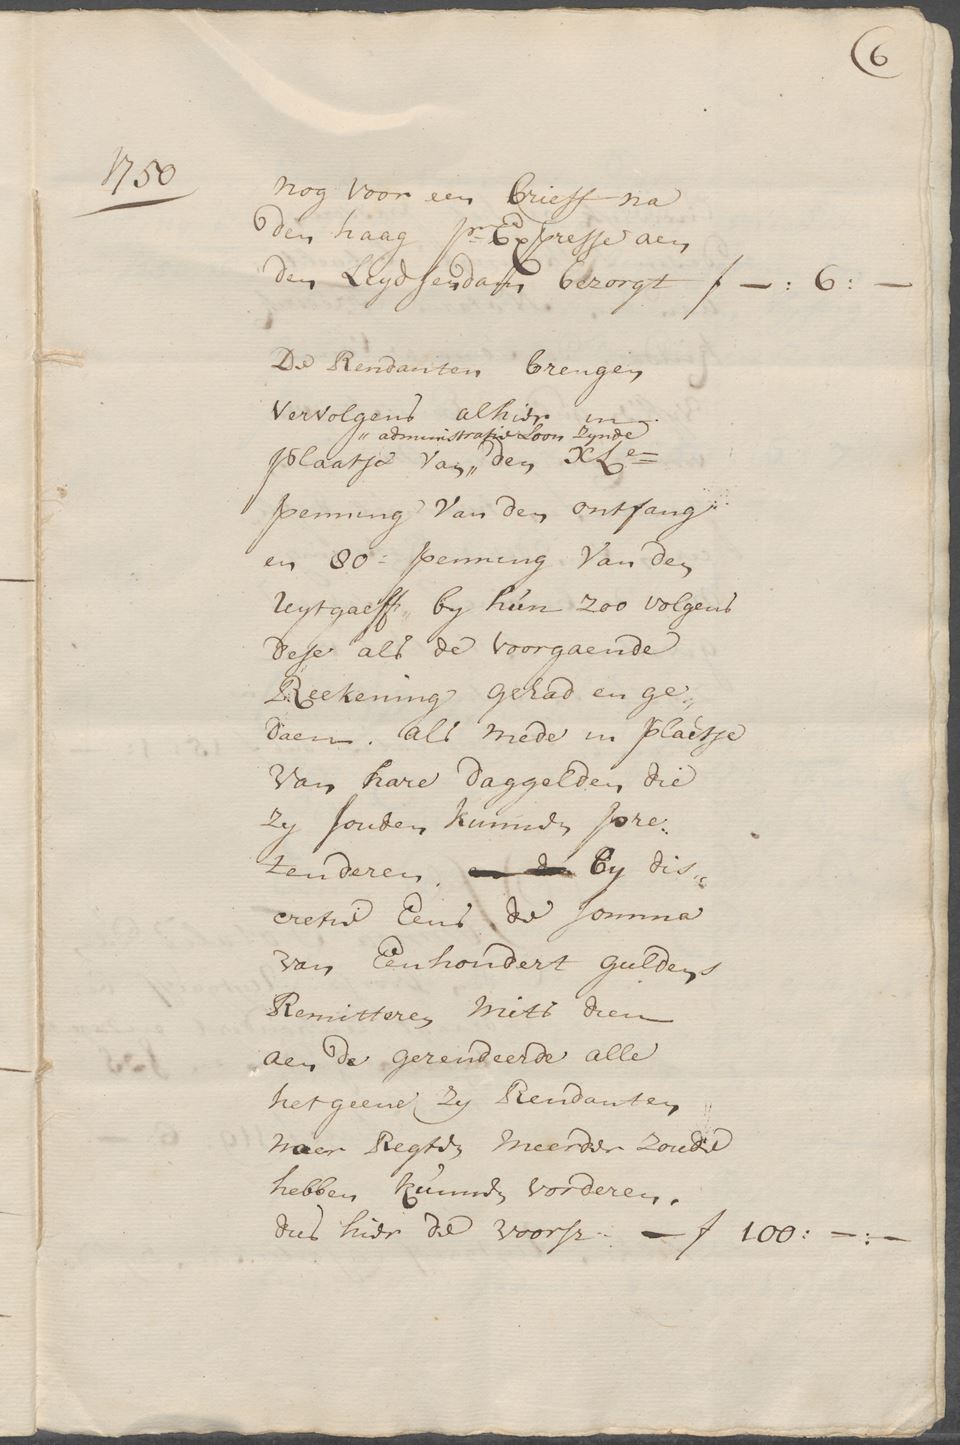 6
1750
nog voor een brieff na
den haag pr Expresse aen
den Leydsendam bezorgt f — : 6 : —
De Rendanten brengen
vervolgens alhier in
„ administratie Loon zynde
plaatse van „ den XLe
penning van den ontfang
en 80 = penning van den
uytgaeff „ by hun zoo volgens
dese als de voorgaende
Reekening gehad en ge„
daen. als mede in plaetse
van hare daggelden die
zy souden kunnen pre„
tenderen. by dis„
cretie Eens de somma
van Eenhondert guldens
Remitteren mits dien
aen de gerendeerde alle
hetgeene zy Rendanten
naer Regten meerder zoude
hebben kunnen vorderen.
dus hier de voorsz — f 100 : — : —